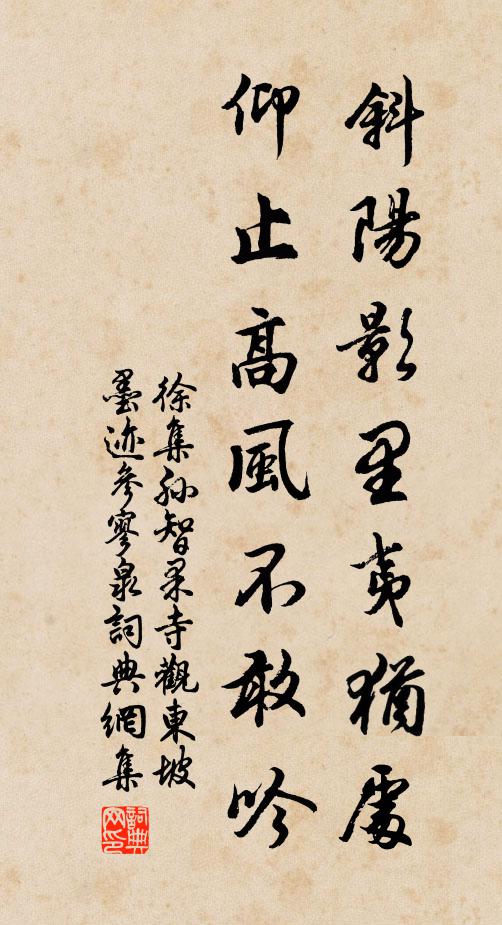 斜陽影里夷猶處
仰止高風不敢吟
徐集孫智果寺觀東坡
墨迹參寥泉詞典網集
詞典网印